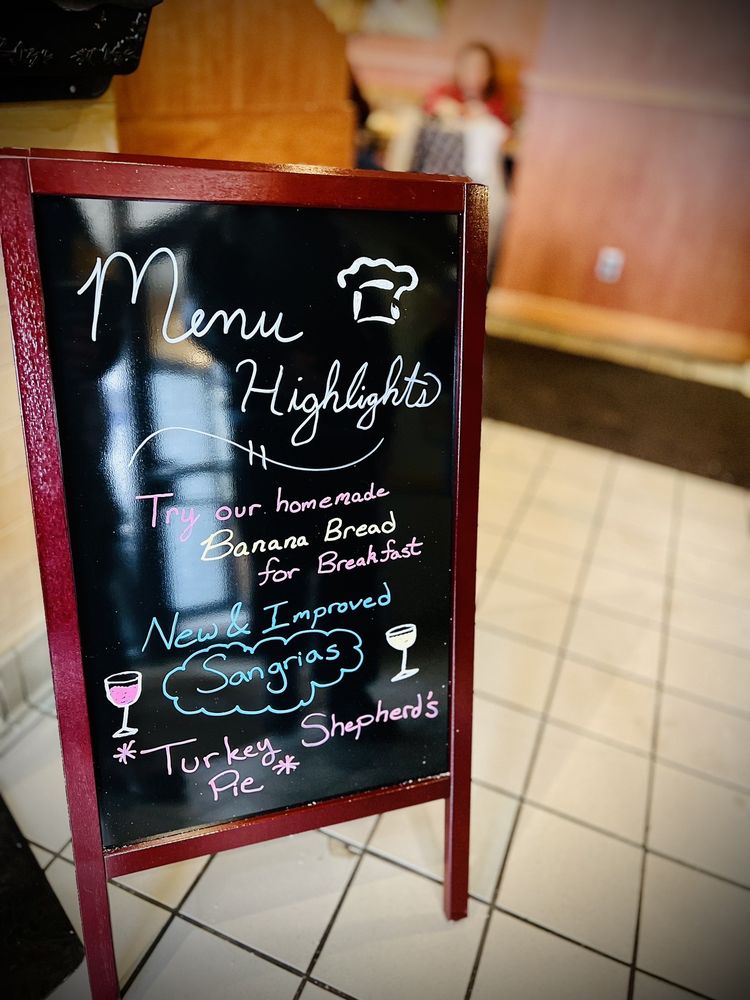 Menu
Highlights
Try our homemade
Banana Bread
for Breakfast
New & Improved
Sangrias
*Turkey Shepherd's
Pie*